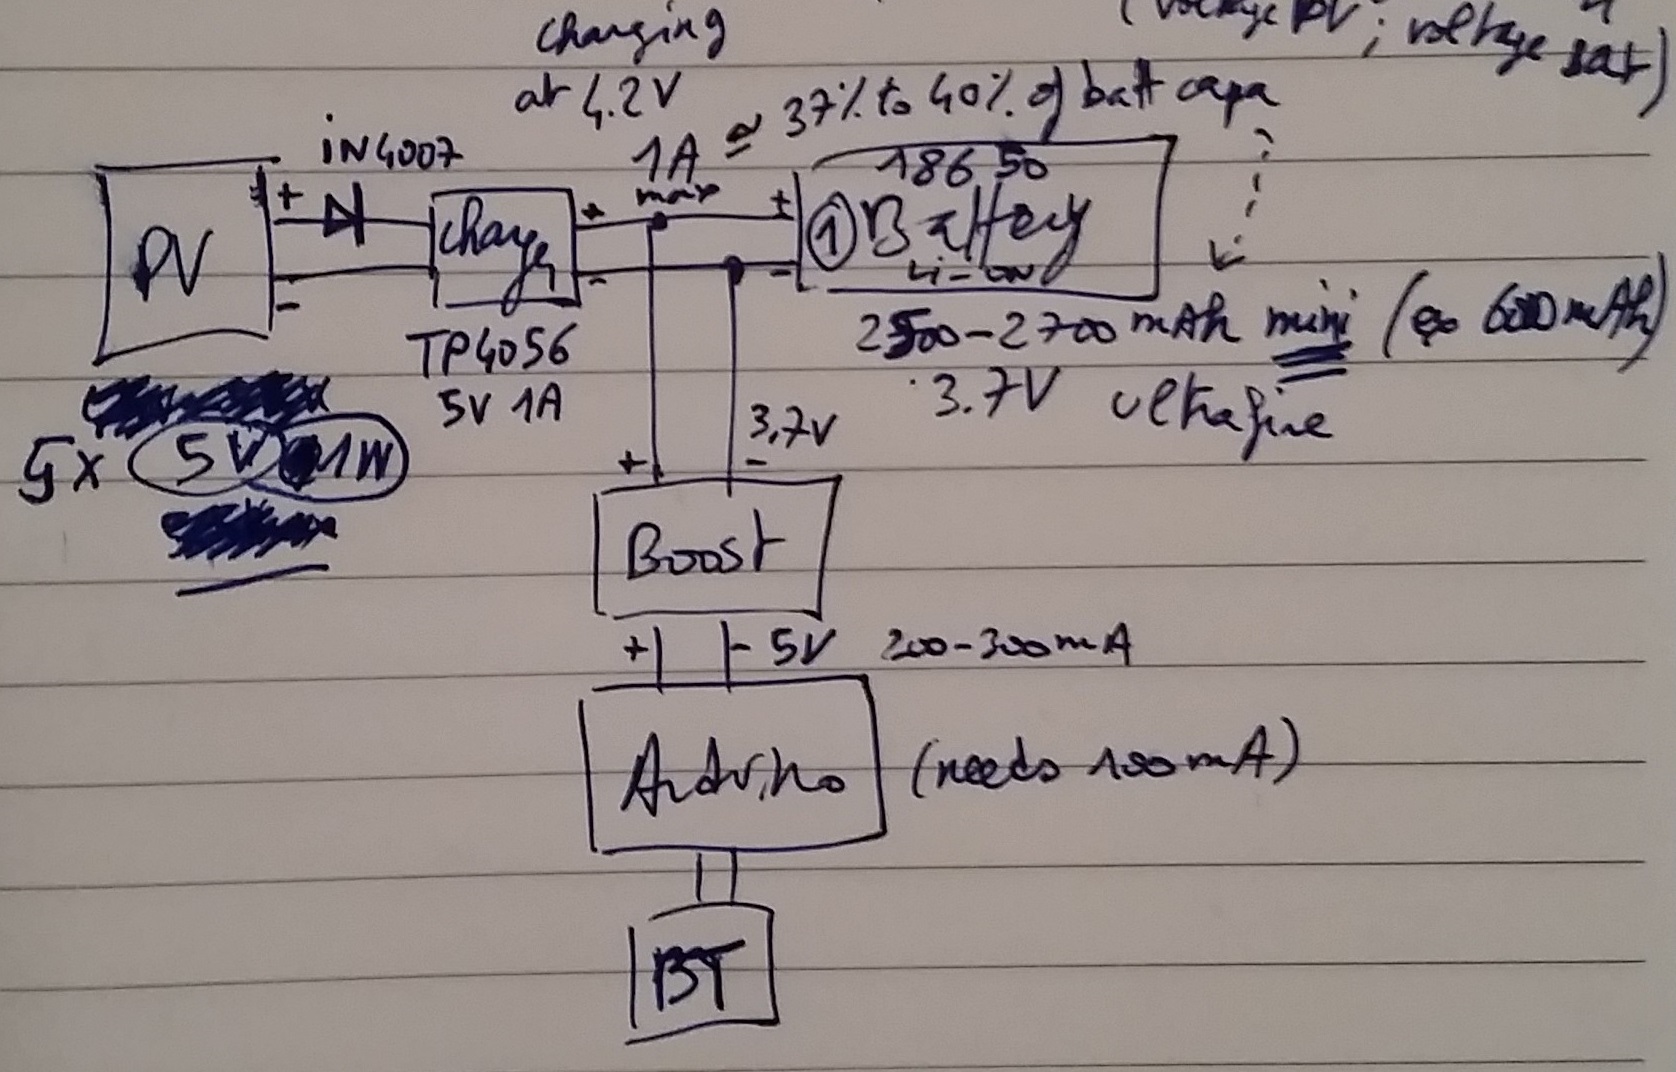 (voltage PV ; voltage bat)
charging
at 4.2V
1A ≃ 37% to 40% of batt capa
max
iN4007
PV
+
-
Charger
+
-
TP4056
5V 1A
5x 5V 1W
+
-
18650
① Battery
Li-on
2500-2700 mAh mini (∞ 6000mAh)
3.7V ultrafire
3,7V
+
-
Boost
+ - 5V 200-300mA
Arduino (needs 100mA)
BT